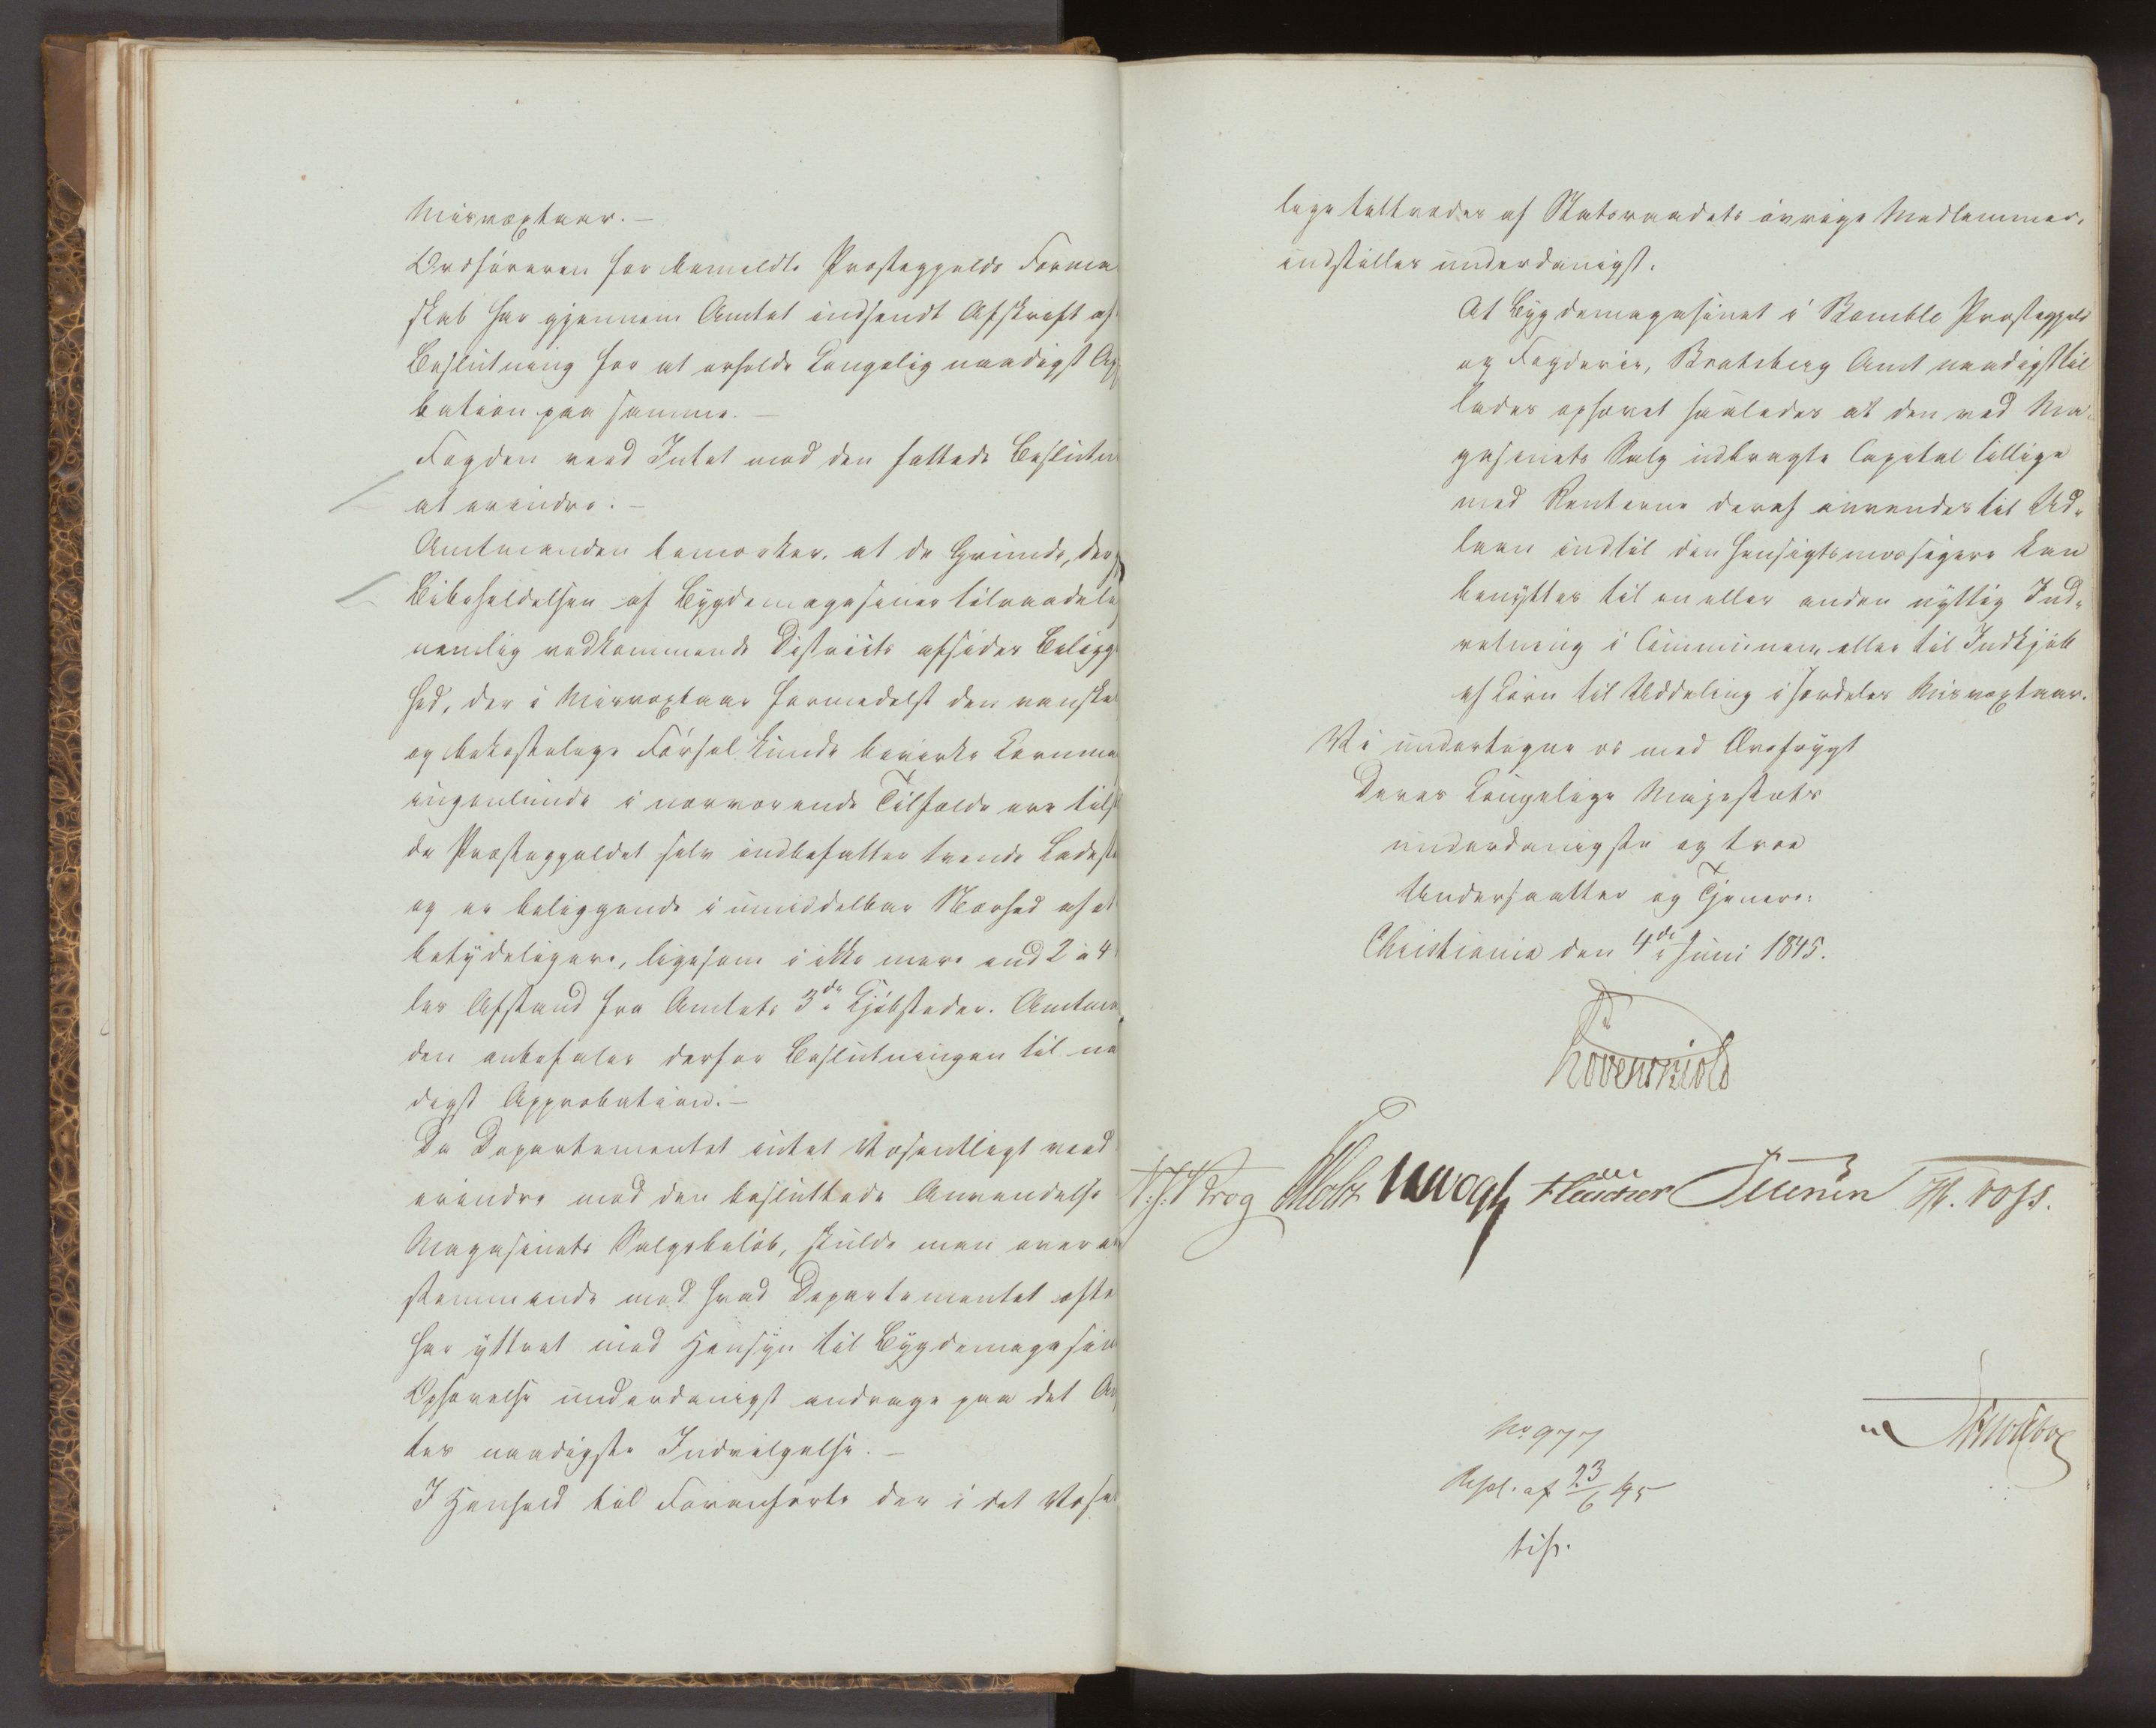 Misvæxtaar. –
Ordføreren for bemeldte Præstegjelds Forma
skab har gjennem Amtet indsendt Afskrift af
Beslutning for at erholde Kongelig naadigst Ap
bation paa samme. –
Fogden veed Intet mod den fattede Beslutn
at erindre. –
Amtmanden bemærker, at de Grunde, der
Bibeholdelsen af Bygdemagasiner tilraadele
nemlig vedkommende Districts afsides Beligg
hed, der i Misvæxtaar formedelst den vanske
og bekostelige Førsel kunde bevirke Kornma
ingenlunde i nærværende Tilfælde ere tils
da Præstegjeldet selv indbefatter trende Ladeste
og er beliggende i umiddelbar Nærhed af et
betydeligere, ligesom i ikke mere end 2 a 4
les Afstand fra Amtets 3de Kjøbstæder. Amtma
den anbefaler derfor Beslutningen til na
digst Approbation. –
Da Departementet intet Væsentligt veed
erindre mod den besluttede Anvendelse
Magasinets Salgsbeløb, skulde man overe
stemmende med hvad Departementet ofte
har yttret med Hensyn til Bygdemagasin
Ophævelse underdanigst andrage paa det An
tes naadigste Indvilgelse. –
I Henhold til Foranførte der i det Væse
lige tiltrædes af Statsraadets øvrige Medlemmer,
indstilles underdanigst:
At Bygdemagasinet i Bamble Præstegjeld
og Fogderie, Bratsberg Amt naadigst til
lades ophævet saaledes at den ved Ma-
gasinets Salg indbragte Capital tillige
med Renterne deraf anvendes til Ud-
laan indtil den hensigtsmæssigere kan
benyttes til en eller anden nyttig Ind-
retning i Communen eller til Indkjøb
af Korn til Uddeling i særdeles Misvæxtaar.
Vi undertegne os med Ærefrygt
Deres Kongelige Majestæts
underdanigste og troe
Undersaatter og Tjenere.
Christiania den 4de Juni 1845.
Løvenskiold
Krog Holst Vogt Sibbern
No 977
Resol. af 23/6 45